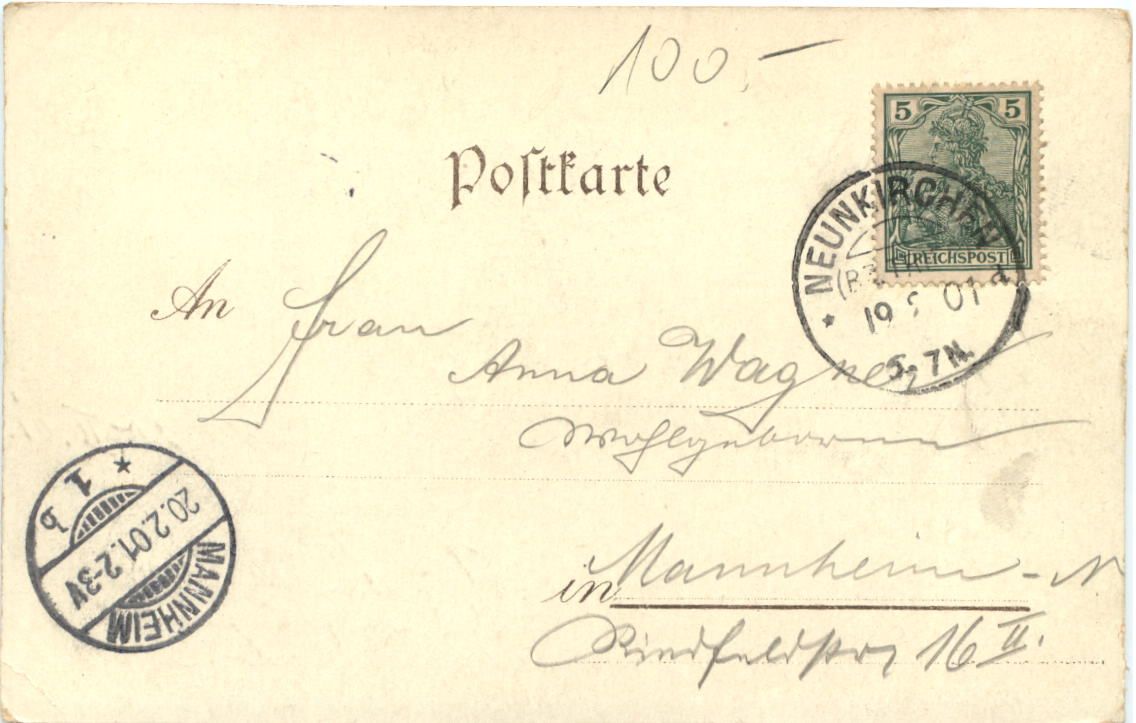 100,-
Postkarte
5 5
REICHSPOST
* NEUNKIRCHEN
19 2 01
5-7N.
An Frau
Anna Wagner
Wohlgeboren
1
b
20.2.01.2-3V
MANNHEIM
in Mannheim-N
Riedfeldstr 16 II.